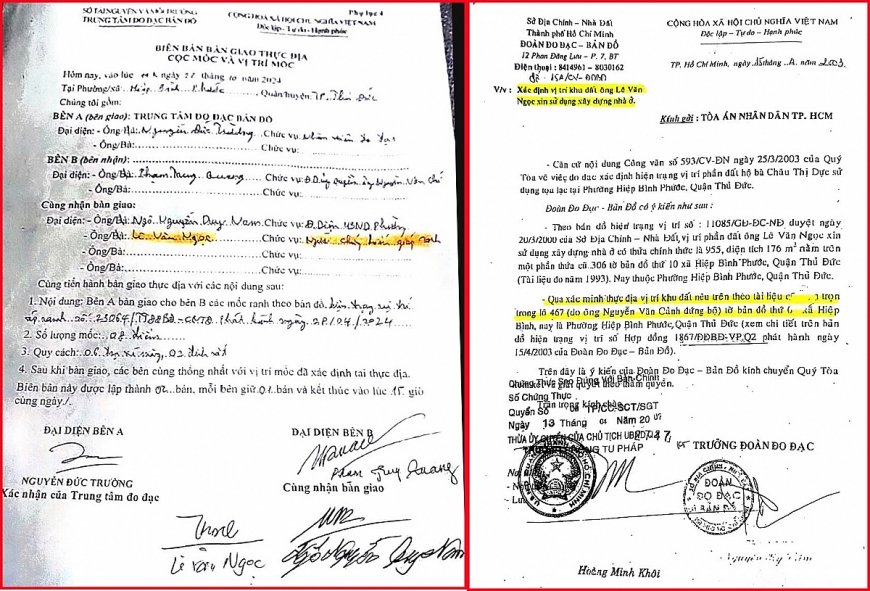 SỞ TÀI NGUYÊN VÀ MÔI TRƯỜNG
TRUNG TÂM ĐO ĐẠC BẢN ĐỒ
Phụ lục 4
CỘNG HÒA XÃ HỘI CHỦ NGHĨA VIỆT NAM
Độc lập - Tự do - Hạnh phúc
BIÊN BẢN BÀN GIAO THỰC ĐỊA
CỌC MỐC VÀ VỊ TRÍ MỐC
Hôm nay, vào lúc ngày 22 tháng 10 năm 2024
Tại Phường/xã Hiệp Bình Phước Quận/huyện TP Thủ Đức
Chúng tôi gồm:
BÊN A (bên giao): TRUNG TÂM ĐO ĐẠC BẢN ĐỒ
Đại diện: - Ông/Bà: Nguyễn Đức Trường Chức vụ: Nhân viên đo đạc
- Ông/Bà: Chức vụ:
BÊN B (bên nhận):
Đại diện: - Ông/Bà: Phạm Quang Chức vụ: Nguyễn Văn
- Ông/Bà: Chức vụ:
Cùng nhận bàn giao:
Đại diện: - Ông/Bà: Ngô Nguyễn Duy Nam Chức vụ: Đ. Diện UBND Phường
- Ông/Bà: Lê Văn Ngọc Chức vụ: giáp ranh
- Ông/Bà: Chức vụ:
- Ông/Bà: Chức vụ:
Cùng tiến hành bàn giao thực địa với các nội dung sau:
1. Nội dung: Bên A bàn giao cho bên B các mốc ranh theo bản đồ hiện trạng vị trí
áp ranh số phát hành ngày 2024
2. Số lượng mốc: 08 điểm
3. Quy cách: 06 02 đinh sắt
4. Sau khi bàn giao, các bên cùng thống nhất với vị trí mốc đã xác định tại thực địa.
Biên bản này được lập thành 02 bản, mỗi bên giữ 01 bản và kết thúc vào lúc 15 giờ
cùng ngày./.
ĐẠI DIỆN BÊN A
ĐẠI DIỆN BÊN B
NGUYỄN ĐỨC TRƯỜNG
Xác nhận của Trung tâm đo đạc
Cùng nhận bàn giao
Lê Văn Ngọc
Ngô Nguyễn Duy Nam
Sở Địa Chính - Nhà Đất
Thành phố Hồ Chí Minh
ĐOÀN ĐO ĐẠC - BẢN ĐỒ
12 Phan Đăng Lưu - P. 7, BT
Điện thoại : 8414961 - 8030162
CỘNG HÒA XÃ HỘI CHỦ NGHĨA VIỆT NAM
Độc lập - Tự do - Hạnh phúc
TP. Hồ Chí Minh, ngày 15 tháng 4 năm 2003
V/v : Xác định vị trí khu đất ông Lê Văn
Ngọc xin sử dụng xây dựng nhà ở.
Kính gửi : TÒA ÁN NHÂN DÂN TP. HCM
- Căn cứ nội dung Công văn số 593/CV-ĐN ngày 25/3/2003 của Quý
Tòa về việc đo đạc xác định hiện trạng vị trí phần đất hộ bà Châu Thị Dực sử
dụng tọa lạc tại Phường Hiệp Bình Phước, Quận Thủ Đức.
Đoàn Đo Đạc - Bản Đồ có ý kiến như sau :
- Theo bản đồ hiện trạng vị trí số : 11085/GĐ-ĐC-NĐ duyệt ngày
20/3/2000 của Sở Địa Chính – Nhà Đất, vị trí phần đất ông Lê Văn Ngọc xin
sử dụng xây dựng nhà ở có thửa chính thức là 955, diện tích 176 m² nằm trên
một phần thửa cũ 306 tờ bản đồ thứ 10 xã Hiệp Bình Phước, Quận Thủ Đức
(Tài liệu đo năm 1993). Nay thuộc Phường Hiệp Bình Phước, Quận Thủ Đức.
- Qua xác minh thực địa vị trí khu đất nêu trên theo tài liệu trọn
trong lô 467 (do ông Nguyễn Văn Cảnh đứng bộ) tờ bản đồ thứ xã Hiệp
Bình, nay là Phường Hiệp Bình Phước, Quận Thủ Đức (xem chi tiết trên bản
đồ hiện trạng vị trí số Hợp đồng 1867/ĐĐBĐ-VP.Q2 phát hành ngày
15/4/2003 của Đoàn Đo Đạc – Bản Đồ).
Trên đây là ý kiến của Đoàn Đo Đạc – Bản Đồ kính chuyển Quý Tòa
xem xét và giải quyết theo thẩm quyền.
Chứng Thực Sao Đúng Với Bản Chính
Trân trọng kính chào
Số Chứng Thực
Quyển Số TP/CC-SCT/SGT
Ngày 13 Tháng 04 Năm
THỪA ỦY QUYỀN CỦA CHỦ TỊCH UBND
TƯ PHÁP
TRƯỞNG ĐOÀN ĐO ĐẠC
ĐOÀN
ĐO ĐẠC
BẢN ĐỒ
Hoàng Minh Khôi